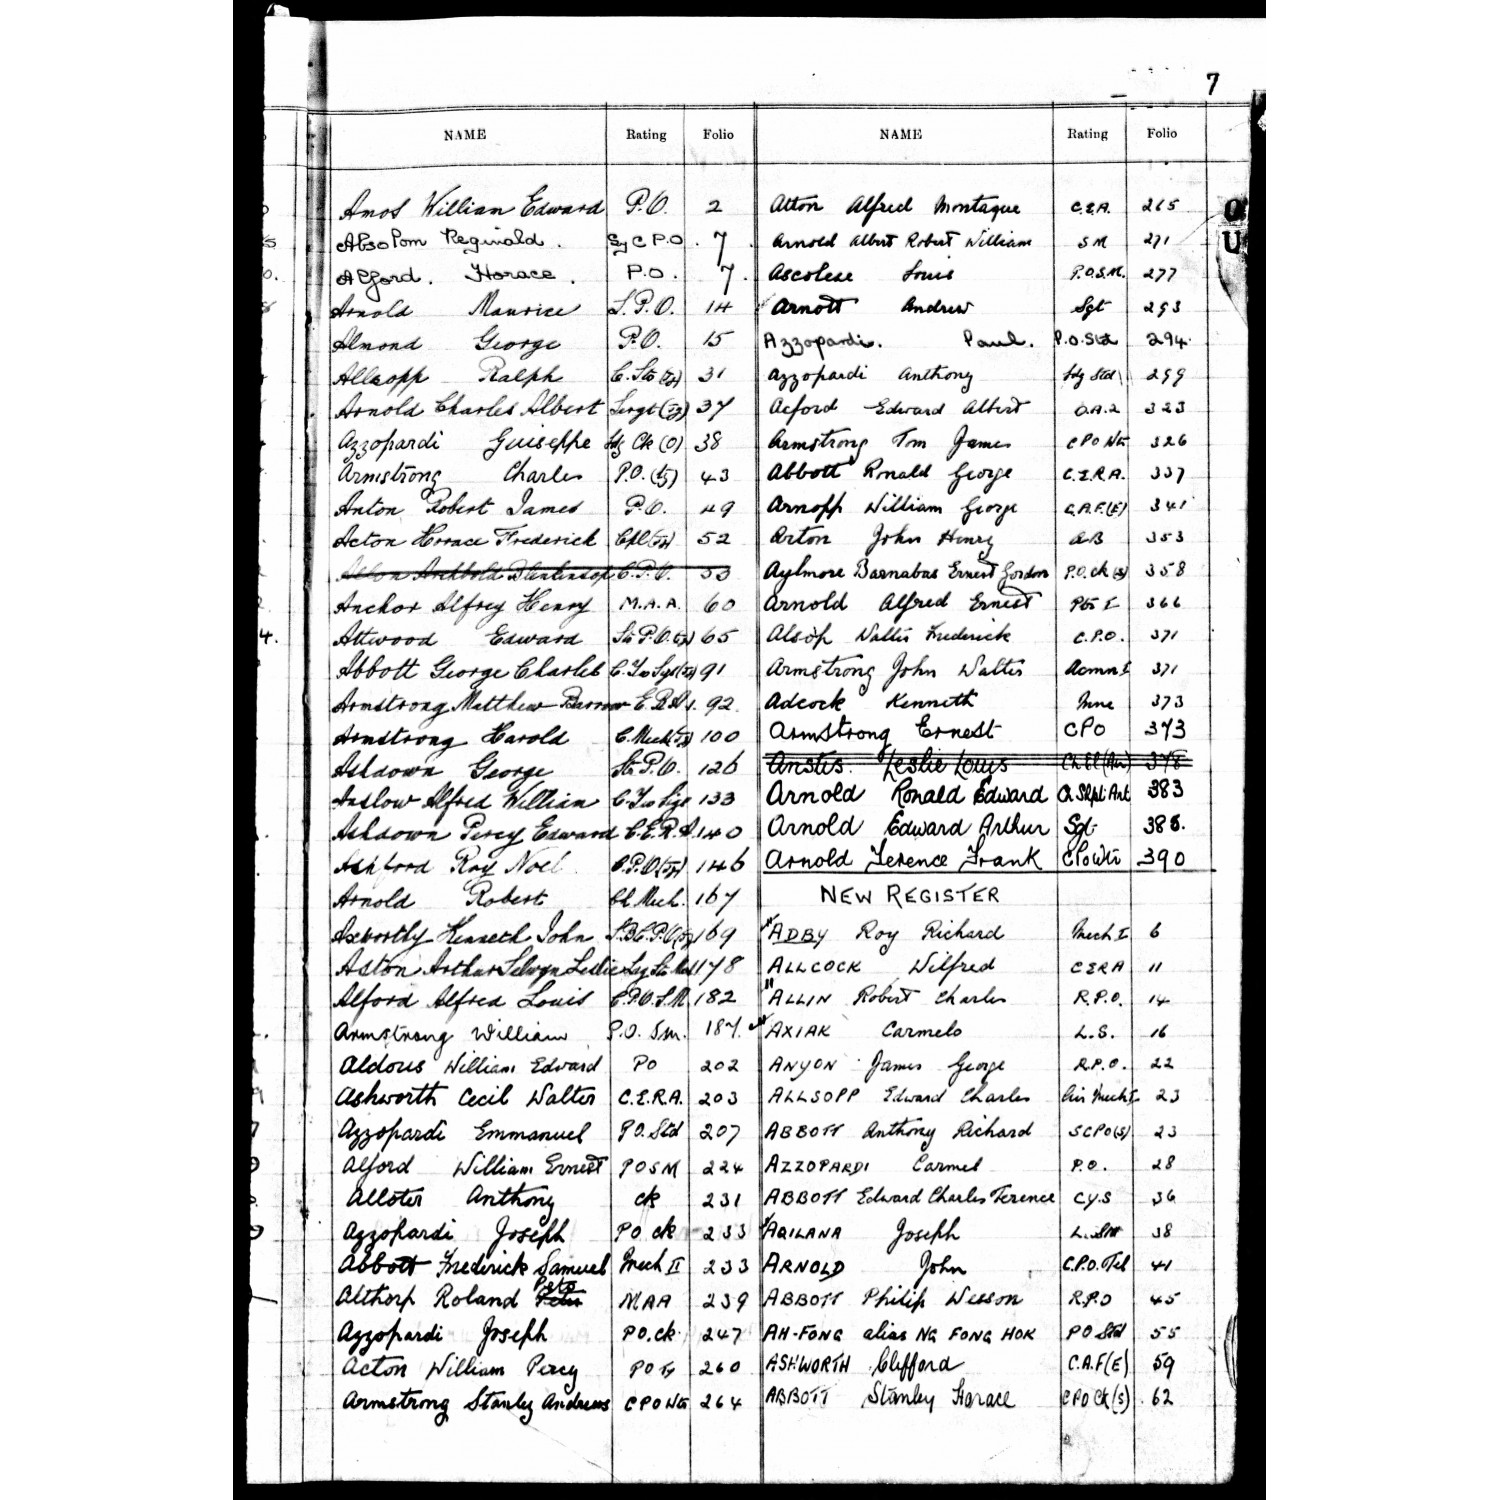 7
NAME Rating Folio
Amos William Edward P.O. 2
Absolom Reginald. Sy C P.O. 7
Alford. Horace. P.O. 7.
Arnold Maurice S.P.O. 14
Almond George P.O. 15
Allsopp Ralph C. Sto (Ty) 31
Arnold Charles Albert Sergt (Ty) 37
Azzopardi Guiseppe Ldg Ck (O) 38
Armstrong Charles P.O. (Ty) 43
Anton Robert James P.O. 49
Acton Horace Frederick Cpl (Ty) 52
Archbold Blenkinsop C.P.O. 53
Anchor Alfrey Henry M.A.A. 60
Attwood Edward Sto P.O. (Ty) 65
Abbott George Charles C. Yeo Sigs (Ty) 91
Armstrong Matthew Barrow E.R.A. 92.
Armstrong Harold C. Mech (Ty) 100
Ashdown George Sto P.O. 126
Anslow Alfred William C. Yeo Sigs 133
Ashdown Percy Edward C.E.R.A. 140
Ashford Roy Noel C.P.O (Ty) 146
Arnold Robert Ch. Mech. 167
Axworthy Kenneth John S.B.C.P.O (Ty) 169
Aston Arthur Selwyn Leslie Ldg Sto Mech 178
Alford Alfred Louis C.P.O.S.M. 182
Armstrong William P.O. Sm. 187.
Aldous William Edward PO 202
Ashworth Cecil Walter C.E.R.A. 203
Azzopardi Emmanuel PO. Std 207
Alford William Ernest POSM 224
Alloter Anthony Ck 231
Azzopardi Joseph PO Ck 233
Abbott Frederick Samuel Mech II 233
Althorp Roland Peter Peto MAA 239
Azzopardi Joseph PO. Ck. 247
Acton William Percy PO Ty 260
Armstrong Stanley Andrews CPO Wtr 264
NAME Rating Folio
Atton Alfred Montague C.E.A. 265
Arnold Albert Robert William SM 271
Ascolese Louis P.O.S.M. 277
Arnott Andrew Sgt 293
Azzopardi. Paul. P.O. Std 294.
Azzopardi Anthony Ldg Std 299
Acford Edward Albert O.A.2 323
Armstrong Tom James CPO Wtr 326
Abbott Ronald George C.E.R.A. 337
Arnopp William George C.A.F.(E) 341
Arton John Henry AB 353
Aylmore Barnabas Ernest Gordon P.O. Ck (S) 358
Arnold Alfred Ernest 366
Alsop Walter Frederick C.P.O. 371
Armstrong John Walter Acmn I 371
Adcock Kenneth Mne 373
Armstrong Ernest CPO 373
Anstis. Leslie Louis Ch El (Air) 378
Arnold Ronald Edward Ch Shpt Art 383
Arnold Edward Arthur Sgt 388.
Arnold Terence Frank CPO Wtr 390
NEW REGISTER
ADBY Roy Richard Mech I 6
ALLCOCK Wilfred CERA 11
ALLIN Robert Charles R.P.O. 14
AXIAK Carmelo L.S. 16
ANYON James George R.P.O. 22
ALLSOPP Edward Charles Air Mech I 23
ABBOTT Anthony Richard SCPO(S) 23
AZZOPARDI Carmel P.O. 28
ABBOTT Edward Charles Terence CYS 36
AQILANA Joseph L. Std 38
ARNOLD John C.P.O. Tel 41
ABBOTT Philip Wesson R.P.O 45
AH-FONG alias NG FONG HOK PO Std 55
ASHWORTH Clifford C.A.F(E) 59
ABBOTT Stanley Horace CPO Ck (S) 62